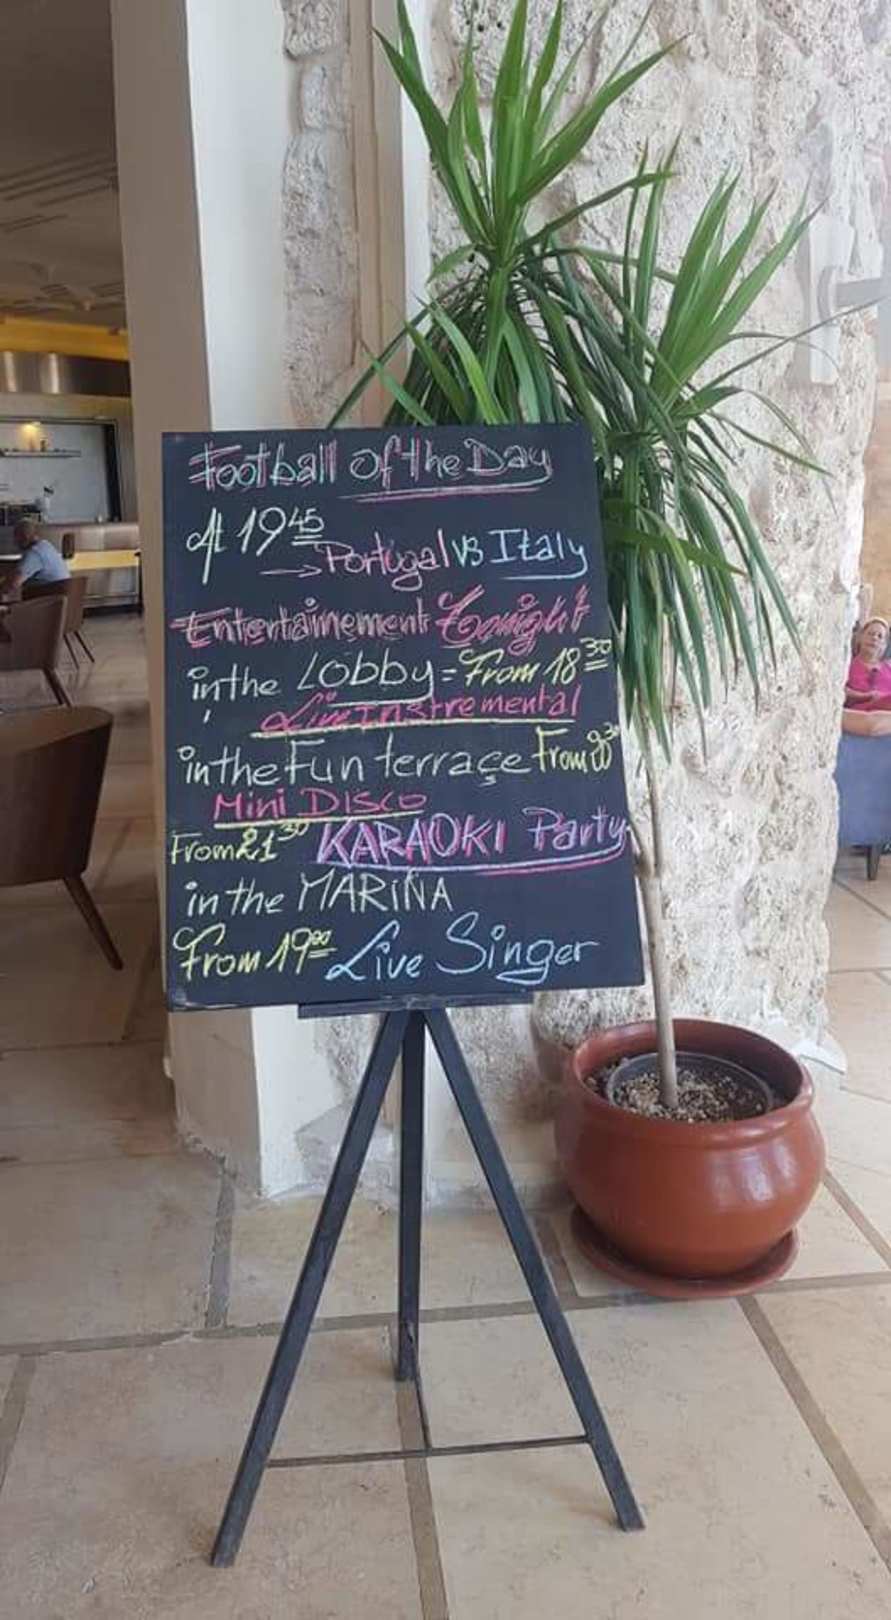 Football of the Day
At 19 45
→ Portugal vs Italy
Entertainement Tonight
in the Lobby = From 18 30
Live instremental
in the Fun terrace From 20 30
Mini Disco
From 21 30 KARAOKI Party
in the MARINA
From 19 00 Live Singer